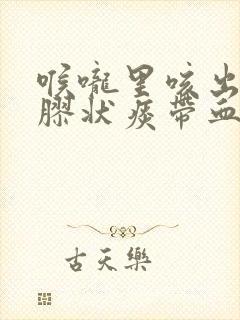 喉嚨里咳出
膠狀痰帶血
古天樂